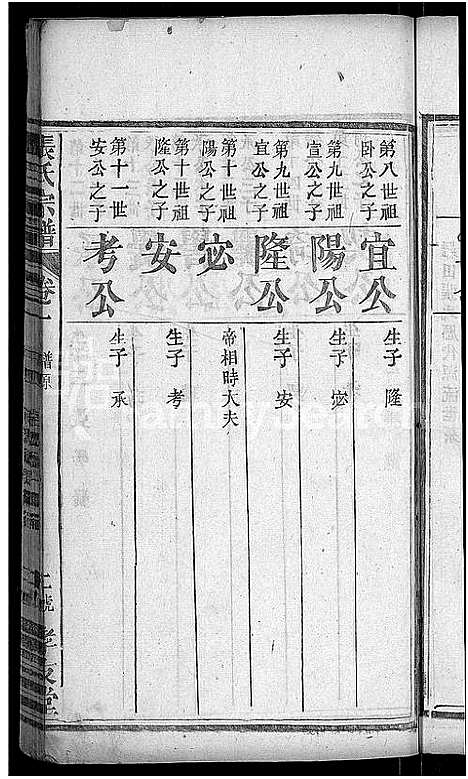 第八世祖
卧公之子
宜公
生子 隆
第九世祖
宣公之子
陽公
生子 宓
第九世祖
宜公之子
隆公
生子 安
第十世祖
陽公之子
宓
帝相時大夫
第十世祖
隆公之子
安
生子 考
第十一世
安公之子
考公
生子 承
張氏宗譜
卷一
譜原
孝友堂